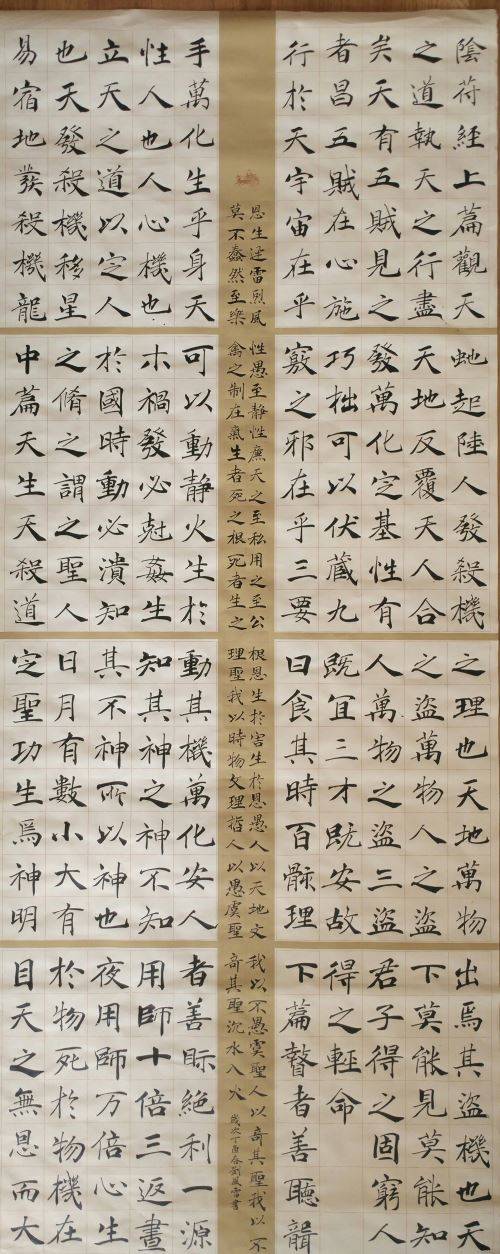 陰符經上篇觀天
之道執天之行盡
矣天有五賊見之
者昌五賊在心施
行於天宇宙在乎
手萬化生乎身天
性人也人心機也
立天之道以定人
也天發殺機移星
易宿地發殺機龍
虵起陸人發殺機
天地反覆天人合
發萬化定基性有
巧拙可以伏藏九
竅之邪在乎三要
可以動靜火生於
木禍發必尅姦生
於國時動必潰知
之脩之謂之聖人
中篇天生天殺道
之理也天地萬物
之盜萬物人之盜
人萬物之盜三盜
既宜三才既安故
曰食其時百骸理
動其機萬化安人
知其神之神不知
其不神所以神也
日月有數小大有
定聖功生焉神明
出焉其盜機也天
下莫能見莫能知
君子得之固窮人
得之輕命
下篇瞽者善聽聾
者善眎絕利一源
用師十倍三返晝
夜用師万倍心生
於物死於物機在
目天之無恩而大
恩生迅雷烈風
莫不蠢然至樂
性愚至靜性廉天之至私用之至公
禽之制在炁生者死之根死者生之
根恩生於害生於恩愚人以天地文
理聖我以時物文理哲人以愚虞聖
我以不愚虞聖人以奇其聖我以不
奇其聖沉水入火
歲次丁酉春劉風雷書